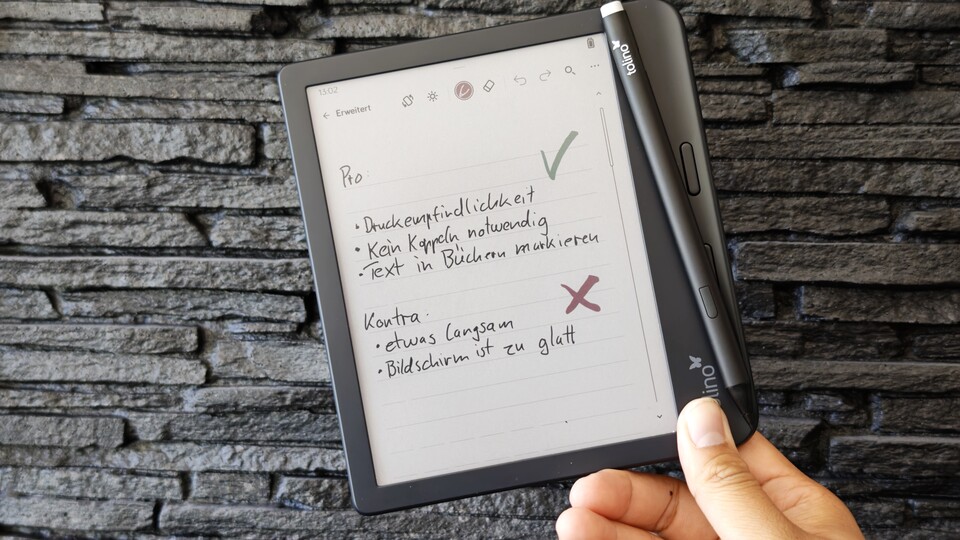 13:02
← Erweitert
Pro:
• Druckempfindlichkeit
• Kein Koppeln notwendig
• Text in Büchern markieren
Kontra:
• etwas langsam
• Bildschirm ist zu glatt
tolino
lino